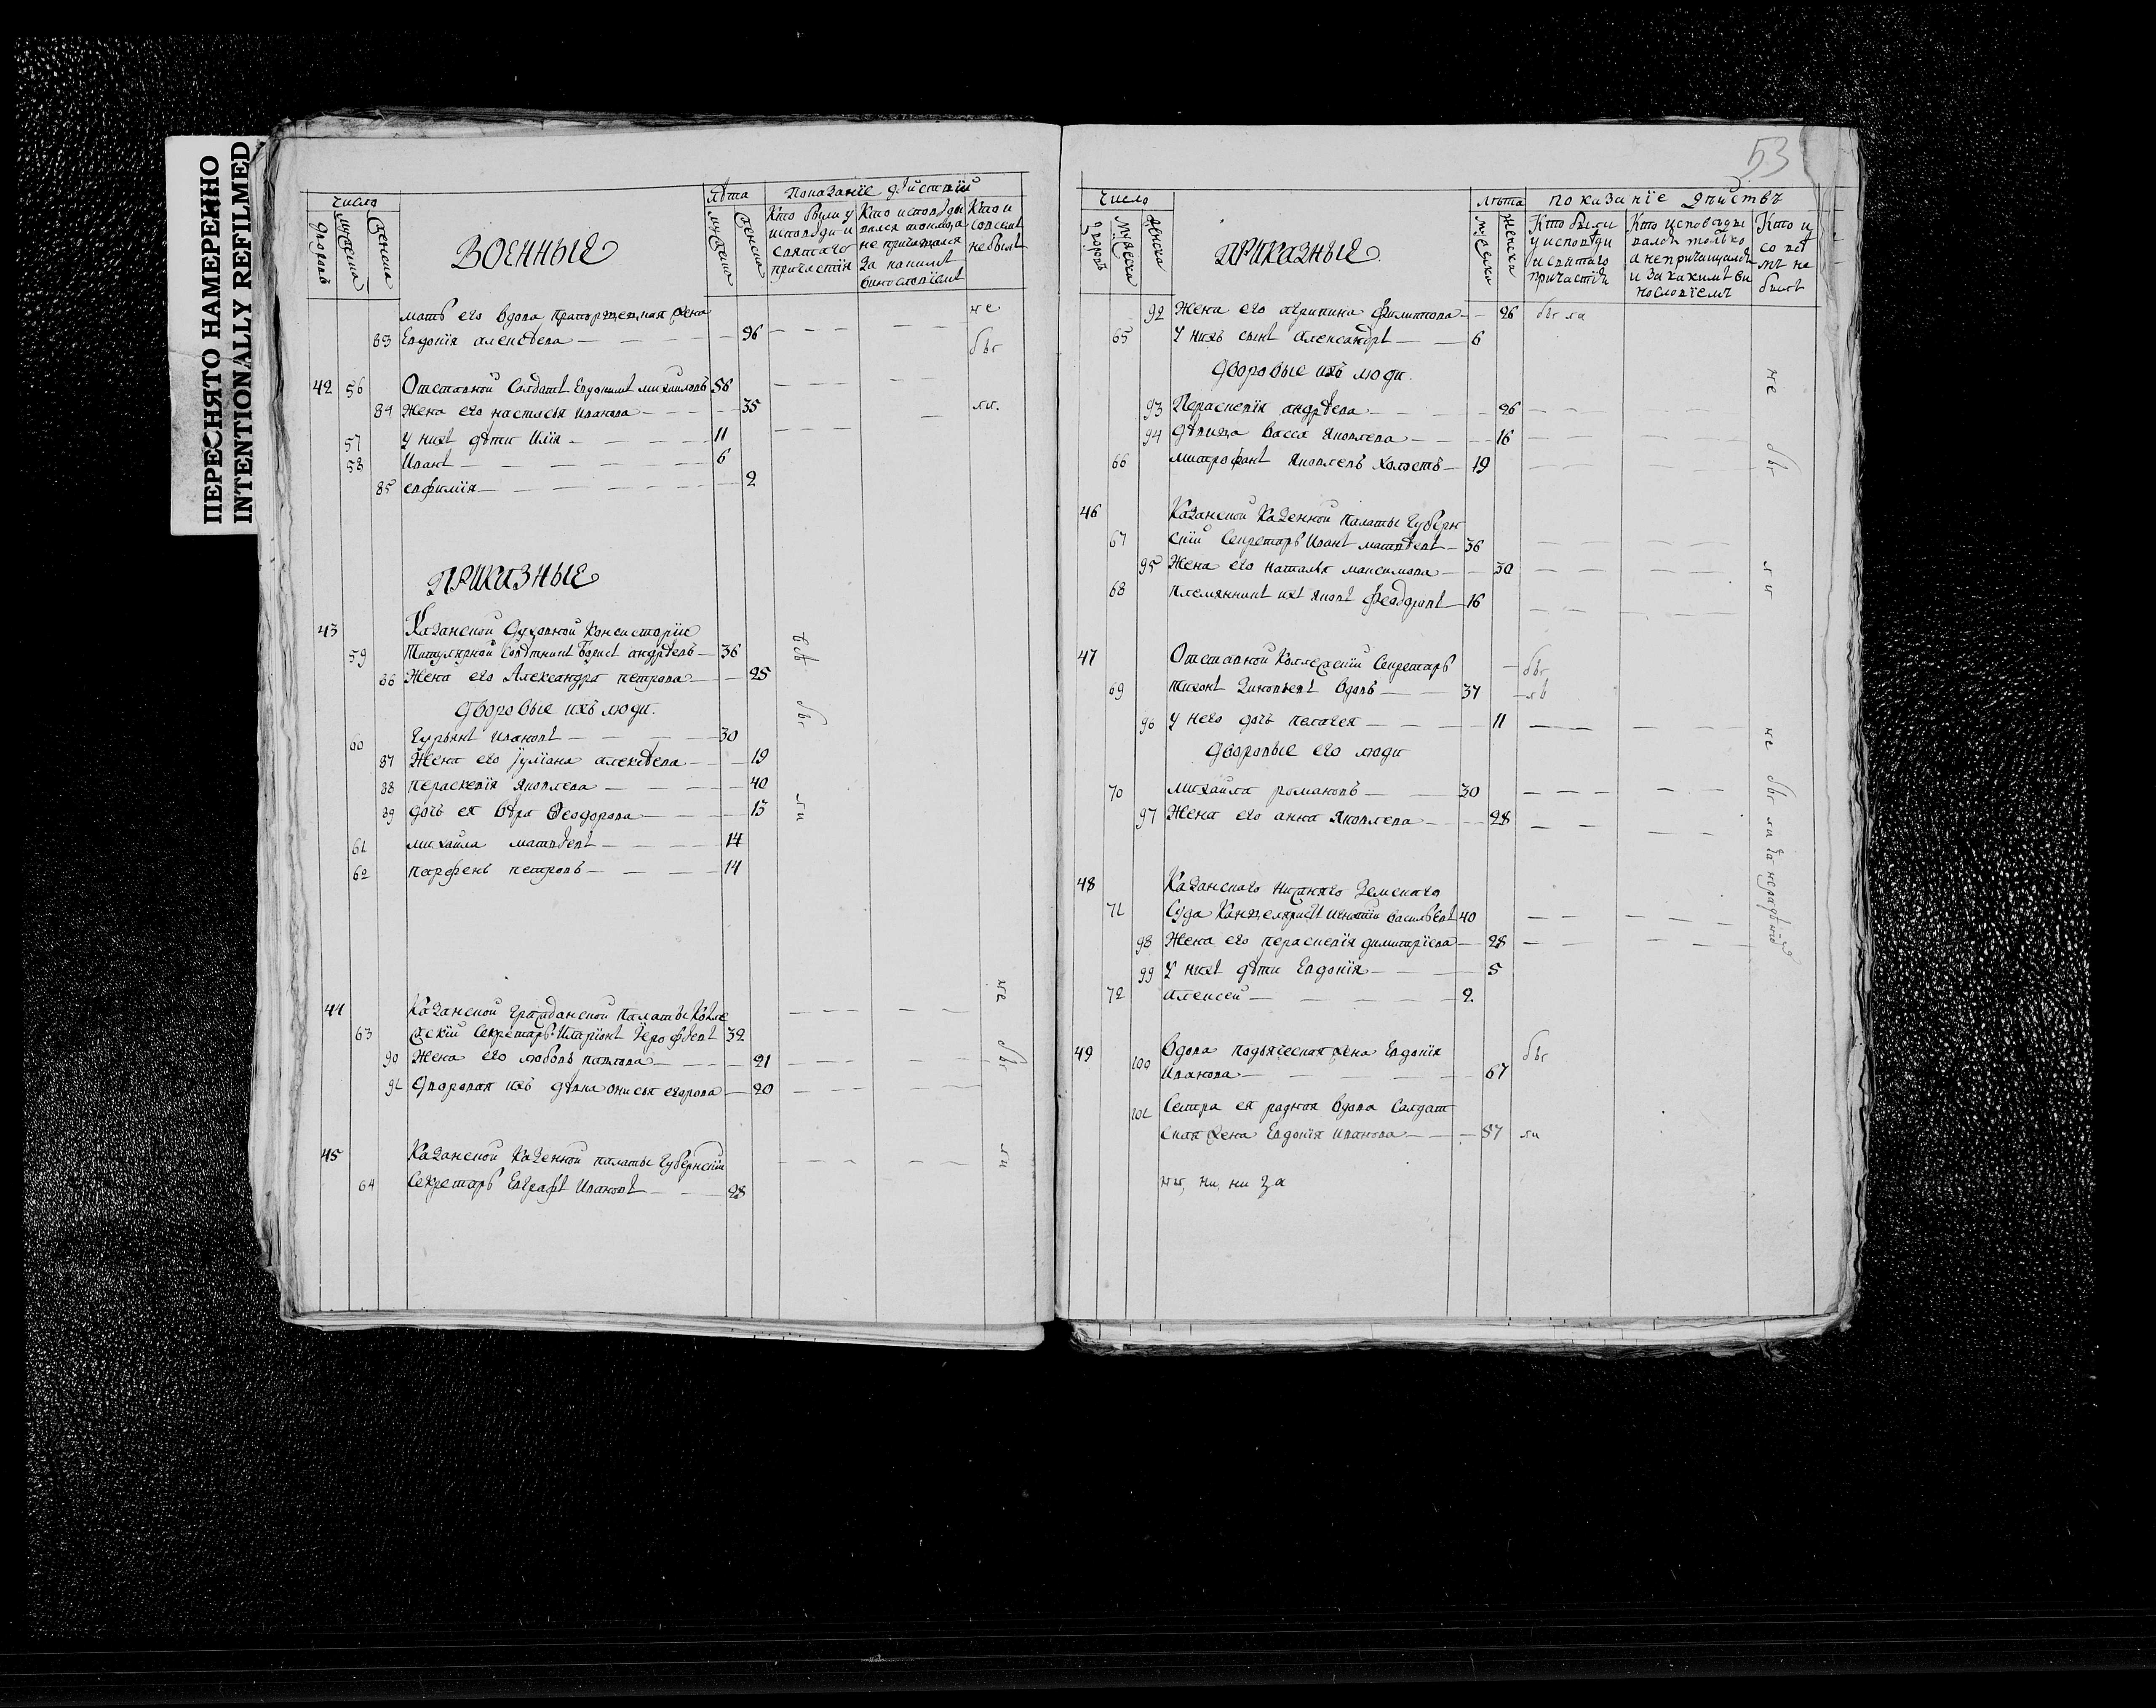 ПЕРЕСНЯТО НАМЕРЕННО
INTENTIONALLY REFILMED
53
Число Лѣта Показанïе дѣйствïй
Дворовъ Мужеска Женска ВОЕННЫЕ мужеска женска Кто были у исповѣди и святаго причастïя Кто исповѣдывался токмо, а не причащался За какимъ винословïемъ Кто и совсемъ не былъ
мать его вдова прапорщецкая жена не
83 Евдокïя алексѣева 96 бы
42 56 Отставной Салдатъ Евдокимъ михаиловъ 56
84 Жена его настасья иванова 35 ли.
57 У нихъ дѣти Илïя 11
58 Иванъ 6
85 евфимïя 2
ПРИКАЗНЫЕ
43 Казанской Духовной Консисторïи
59 Титулярной Совѣтникъ Борисъ андрѣевъ 36 всѣ
86 Жена его Александра петрова 25
Дворовые ихъ люди. бы
60 Гурьянъ Ивановъ 30
87 Жена его Iулïана алексѣева 19
88 параскевïя Яковлева 40
89 дочь ея Вѣра Феодорова 15 ли
61 михайла матвѣевъ 14
62 парфенъ петровъ 14
44 Казанской Гражданской Палаты Колле не
63 жскïй Секретарь Иларïонъ Iерофѣевъ 32
90 Жена его любовь павлова 21 бы
91 Дворовая ихъ дѣвка онисья егорова 20
45 Казанской Казенной палаты Губернскïй ли
64 Секретарь Евграфъ Ивановъ 28
Число Лѣта показанïе дѣйствъ
дворовъ мужеска женска ПРИКАЗНЫЕ мужеска женска Кто были у исповѣди и святаго причастïя Кто исповѣдывался только а не причащался и за какимъ винословïемъ Кто и со всѣмъ не былъ
92 Жена его агрипина Филиппова 26 были
65 У нихъ сынъ Александръ 6
Дворовые ихъ люди. не
93 Параскевïя андрѣева 26
94 Дѣвица Васса Яковлева 16
66 митрофанъ Яковлевъ холостъ 19 бы
46 Казанской Казенной Палаты Губерн
67 скïй Секретарь Иванъ матвѣевъ 36
95 Жена его наталья максимова 30 ли
68 племянникъ ихъ Яковъ Феодоровъ 16
47 Отставной Коллежскïй Секретарь бы
69 тихонъ Зиновьевъ вдовъ 37 лъ
96 У него дочь пелагея 11 не
Дворовые его люди
70 михайла романовъ 30 бы
97 Жена его анна Яковлева 28 ли за нерадѣнïе
48 Казанскаго нижняго Земскаго
71 Суда Канцеляристъ васильевъ 40
98 Жена его параскевïя димитрïева 28
99 У нихъ дѣти Евдокïя 5
72 алексей 2
49 100 Вдова подьяческая жена Евдокïя бы
Иванова 67
101 Сестра ея родная вдова Салдат
ская жена Евдокïя иванова 57 ли